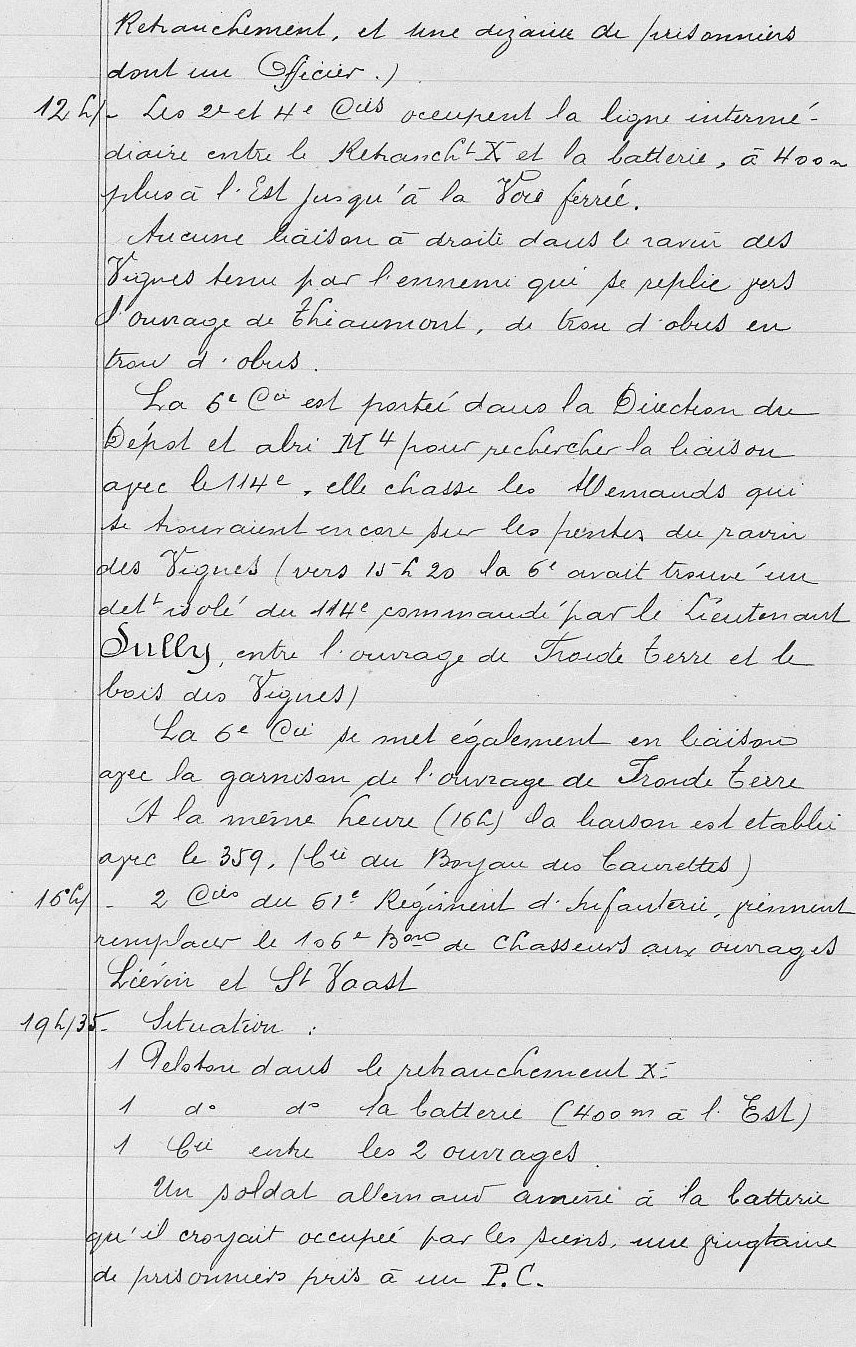 Retranchement, et une dizaine de prisonniers
dont un Officier.)
12 h/- Les 2e et 4e Cies occupent la ligne intermé-
diaire entre le Retrancht X et la batterie, à 400m
plus à l'Est jusqu'à la Voie ferrée.
Aucune liaison à droite dans le ravin des
Vignes tenu par l'ennemi qui se replie vers
l'ouvrage de Thiaumont, de trou d'obus en
trou d'obus.
La 6e Cie est portée dans la Direction du
Dépot et abri M4 pour rechercher la liaison
avec le 114e, elle chasse les Allemands qui
se trouvaient encore sur les pentes du ravin
des Vignes (vers 15h20 la 6e avait trouvé un
dett isolé du 114e commandé par le Lieutenant
Sully, entre l'ouvrage de Froide terre et le
bois des Vignes)
La 6e Cie se met également en liaison
avec la garnison de l'ouvrage de Froide terre
A la même heure (16h) la liaison est etablie
avec le 359. (Cie du Boyau des Caurettes)
16h/ - 2 Cies du 61e Régiment d'Infanterie, viennent
remplacer le 106e Bon de Chasseurs aux ouvrages
Liévin et St Vaast
19h/35- Situation :
1 Peloton dans le retranchement X-
1 do do la batterie (400m à l'Est)
1 Cie entre les 2 ouvrages.
Un soldat allemand amène à la batterie
qu'il croyait occupée par les siens, une vingtaine
de prisonniers pris à un P.C.